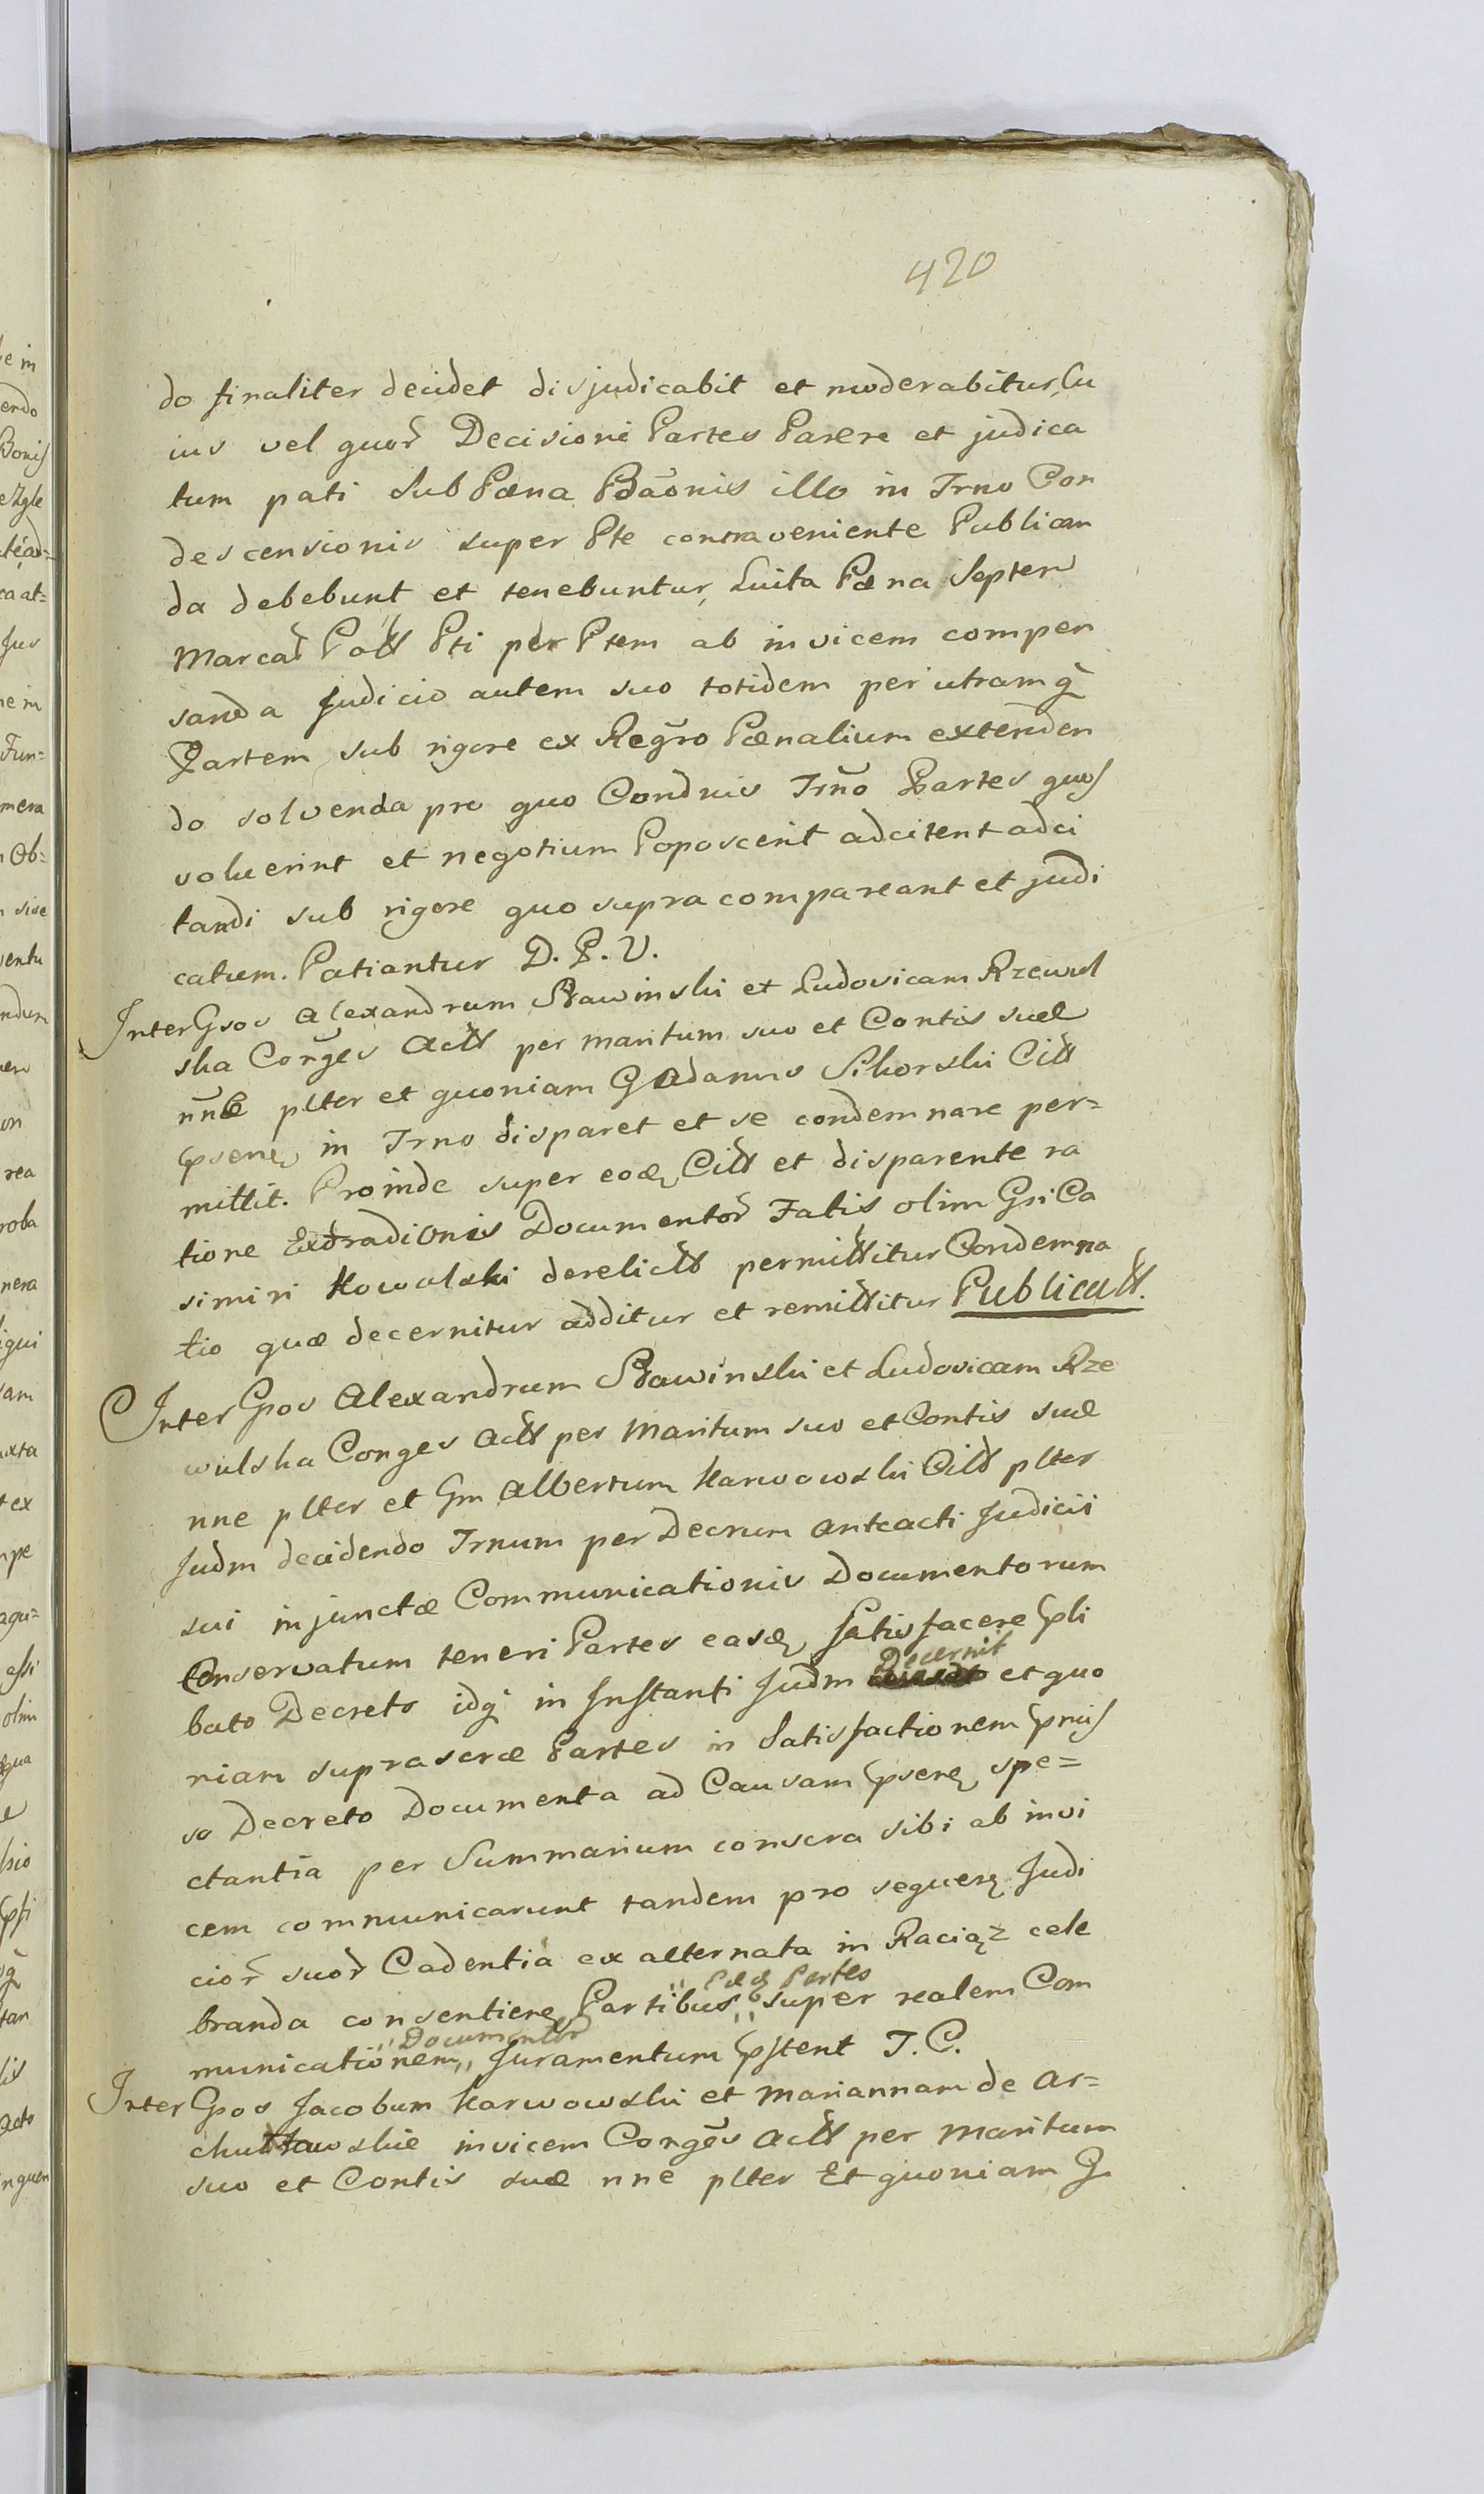 420
do finaliter decidet disjudicabit et moderabitur, Cu
ius vel quor̃ Decisioni Partes Parere et judica
tum pati sub Pæna Bãonis illo in Trno Con
descensionis super Pte contraveniente Publican
da debebunt et tenebuntur, Luita Pæna Septem
Marcar̃ Pti per Ptem ab invicem compen
sanda Judicio autem suo totidem per utramq̃
Partem sub rigore ex Reg̃ro Pænalium extenden
do solvenda pro quo Condnis Trño Partes quas
voluerint et negotium Poposcerit adcitent adci
tandi sub rigore quo supra compareant et judi
catum. Patiantur D. P. V.
Inter Gsos Alexandrum Rawinski et Ludovicam Rzewul
ska Cong̃es Actt per maritum suo et Contis suæ
nñe plter et quoniam G Adamus Sikorski Citt
in Trno disparet et se condemnare per=
mittit. Proinde super eod Citt et disparente ra
tione Extradionis Documentor̃ Fatis olim Gsi Ca
simiri Kowalski derelictt permittitur Condemna
tio quæ decernitur additur et remittitur Publicatt.
Inter Gsos Alexandrum Rawinski et Ludovicam Rze
wulska Conges Actt per Maritum suo et Contis suæ
nne plter et Gm Albertum Karwowski Citt plter
Judm decidendo Trnum per Decrum anteacti Judicii
sui injunctæ Communicationis Documentorum
Conservatum teneri Partes easd Satisfacere
bato Decreto idq̃ in Instanti Judm Decernit et quo
niam suprascræ Partes in Satisfactionem
so Decreto Documenta ad Causam spe=
ctantia per Summarium conscra sibi ab invi
cem communicarunt tandem pro sequen Judi
cior̃ suor̃ Cadentia ex alternata in Raciąz cele
branda consentien Partibus " Eæd Partes " super realem Com
municationem " Documentor̃ " Juramentum T. C.
Inter Gsos Jacobum Karwowski et Mariannam de Ar=
invicem Cong̃es Actt per Maritum
suo et Contis suæ nne plter Et quoniam G